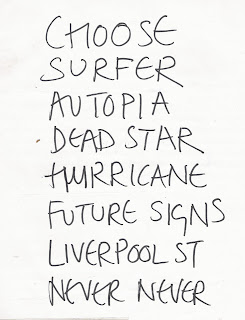 CHOOSE
SURFER
AUTOPIA
DEAD STAR
HURRICANE
FUTURE SIGNS
LIVERPOOL ST
NEVER NEVER